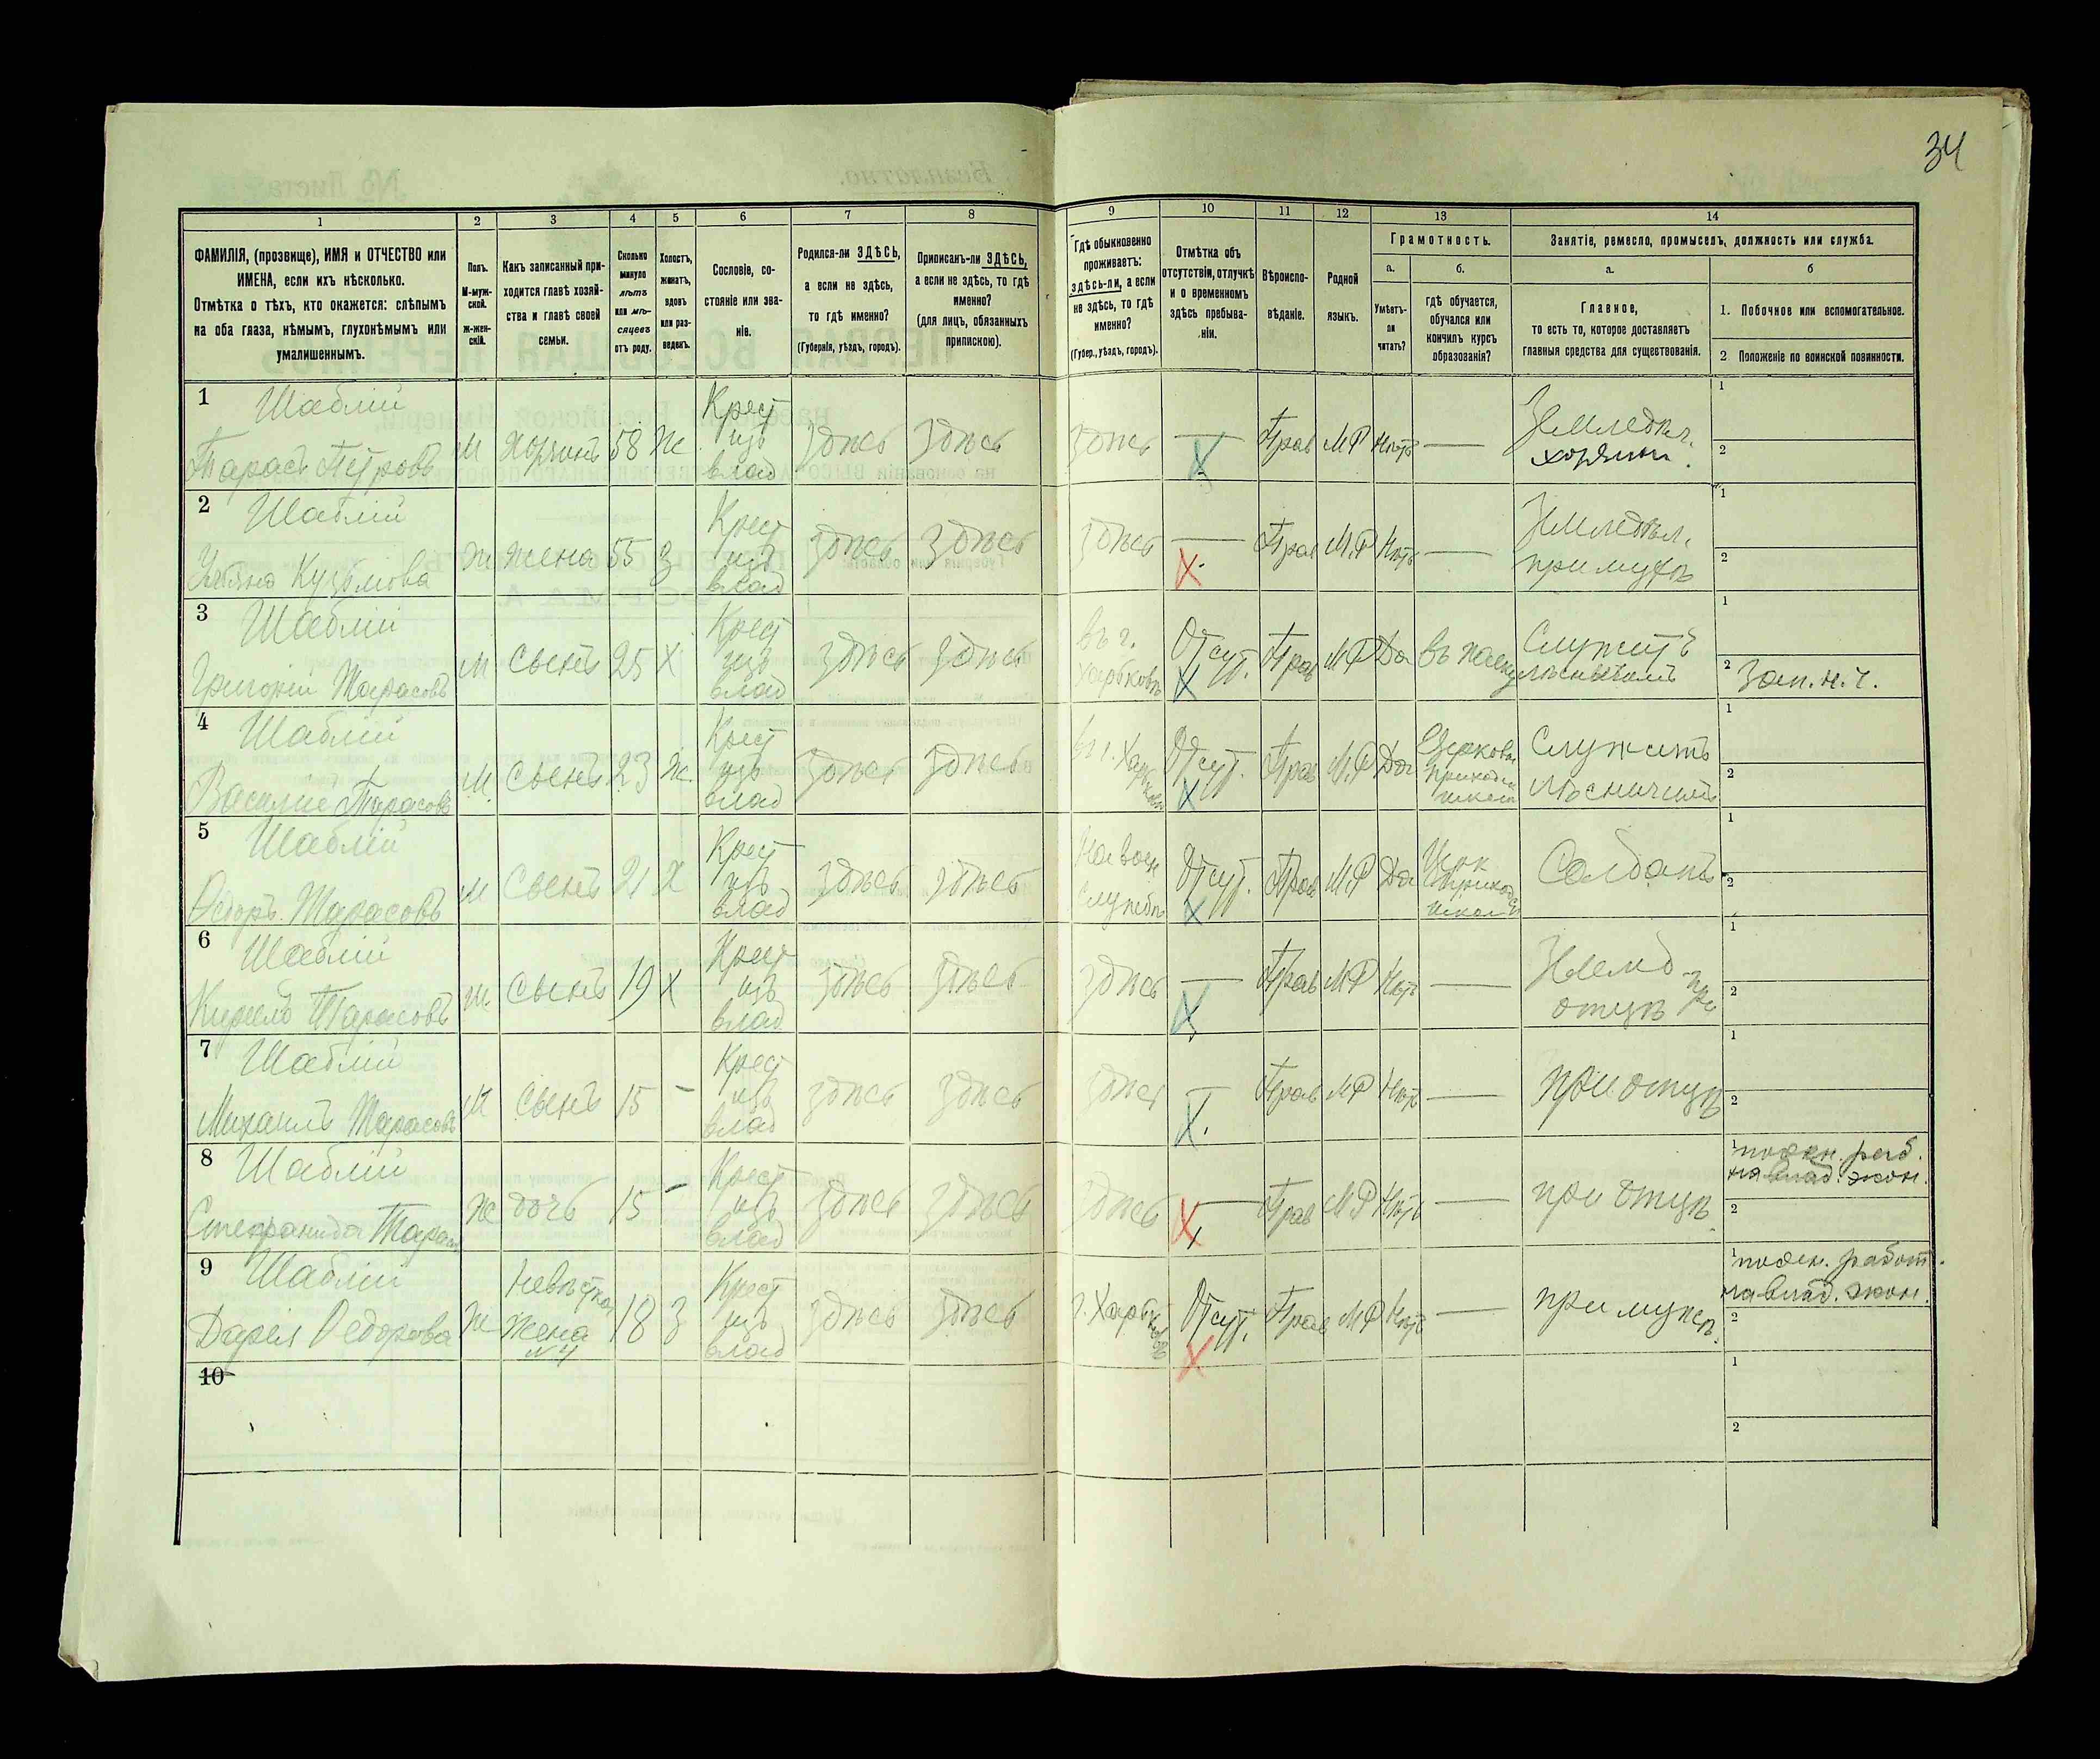 34
1
2
3
4
5
6
7
8
9
10
11
12
13
14
ФАМИЛІЯ, (прозвище), ИМЯ и ОТЧЕСТВО или
ИМЕНА, если ихъ нѣсколько.
Отмѣтка о тѣхъ, кто окажется: слѣпымъ
на оба глаза, нѣмымъ, глухонѣмымъ или
умалишеннымъ.
Полъ.
М-муж-
ской.
ж-жен-
скій.
Какъ записанный при-
ходится главѣ хозяй-
ства и главѣ своей
семьи.
Сколько
минуло
лѣтъ
или мѣ-
сяцевъ
отъ роду.
Холостъ,
женатъ,
вдовъ
или раз-
веденъ.
Сословіе, со-
стояніе или зва-
ніе.
Родился-ли ЗДѢСЬ,
а если не здѣсь,
то гдѣ именно?
(Губернія, уѣздъ, городъ).
Приписанъ-ли ЗДѢСЬ,
а если не здѣсь, то гдѣ
именно?
(для лицъ, обязанныхъ
припискою).
Гдѣ обыкновенно
проживаетъ:
здѣсь-ли, а если
не здѣсь, то гдѣ
именно?
(Губер., уѣздъ, городъ).
Отмѣтка объ
отсутствіи, отлучкѣ
и о временномъ
здѣсь пребыва-
ніи.
Вѣроиспо-
вѣданіе.
Родной
языкъ.
Грамотность.
а.
Умѣетъ-
ли
читать?
б.
гдѣ обучается,
обучался или
кончилъ курсъ
образованія?
Занятіе, ремесло, промыселъ, должность или служба.
а.
Главное,
то есть то, которое доставляетъ
главныя средства для существованія.
б
1. Побочное или вспомогательное.
2. Положеніе по воинской повинности.
1 Шаблій
Тарасъ Петровъ
М
хозяинъ
58
Ж.
Крест
изъ
влад
здѣсь
здѣсь
здѣсь
—
Прав
МР
Нѣтъ
—
Земледѣл.
хозяинъ
1
2
2 Шаблій
Ульяна Кузьмова
Ж
жена
55
З
Крест
изъ
влад
здѣсь
здѣсь
здѣсь
—
Прав
М.Р
Нѣтъ
—
Земледѣл.
при мужѣ
1
2
3 Шаблій
Григорій Тарасовъ
М
сынъ
25
Х
Крест
изъ
влад
здѣсь
здѣсь
въ г.
Харьковѣ
Отсут.
Прав
МР
Да
Служитъ
1
2 Зап. н. ч.
4 Шаблій
Василій Тарасовъ
М.
сынъ
23
Ж.
Крест
изъ
влад
здѣсь
здѣсь
въ г. Харьковѣ
Отсут.
Прав
М.Р
Да
Церковн
приходск
школѣ
Служитъ
1
2
5 Шаблій
Ѳедоръ Тарасовъ
М
сынъ
21
Х
Крест
изъ
влад
здѣсь
здѣсь
На воен
службѣ
Отсут.
Прав
М.Р
Да
Церк
приходск
школ
Солдатъ
1
2
6 Шаблій
Кирило Тарасовъ
М.
сынъ
19
Х
Крест
изъ
влад
здѣсь
здѣсь
здѣсь
—
Прав
МР
Нѣтъ
—
Землед при
отцѣ
1
2
7 Шаблій
Михаилъ Тарасовъ
М
сынъ
15
-
Крест
изъ
влад
здѣсь
здѣсь
здѣсь
—
Прав
МР
Нѣтъ
—
при отцѣ
1
2
8 Шаблій
Стефанида Тарас
Ж
дочь
15
-
Крест
изъ
влад
здѣсь
здѣсь
здѣсь
—
Прав
МР
Нѣтъ
—
при отцѣ.
1 поден. раб.
на влад. экон.
2
9 Шаблій
Дарія Ѳедорова
Ж
Невѣстка
жена
№4
18
З
Крест
изъ
влад
здѣсь
здѣсь
г. Харьковѣ
Отсут.
Прав
МР
Нѣтъ
—
при мужѣ.
1 поден. работ.
на влад. экон.
2
10
1
2